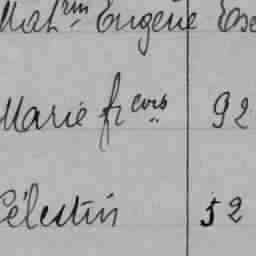 Mat^rin Eugène
Marie fr^çois 92
Célestin 52